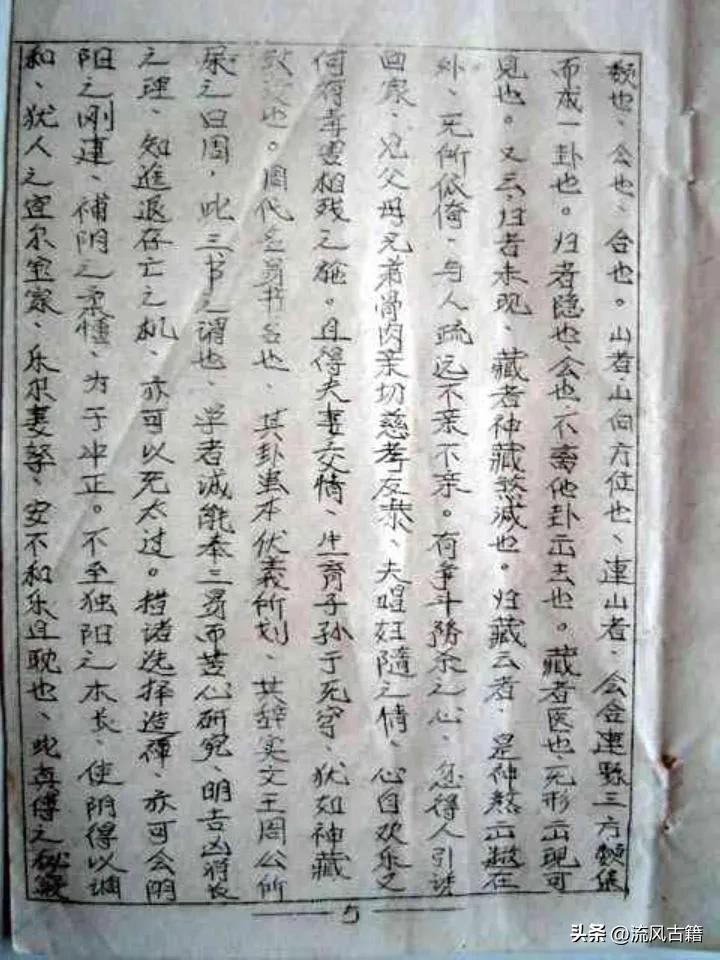 类也、公也、合也。山者山向方位也、連山者、会合連縣三方類集
而成一卦也。归者隐也、会也、不离他卦出去也。藏者医也、无形出现可
見也。又云、归者未现、藏者神藏煞減也。归藏云者、是神煞出殺在
外、无所依倚、与人疏远不亲不亲。有争斗勝余之心、您得人引诱
回家、見父母兄弟骨肉亲切慈孝友恭、夫唱妇随之情、心自欢乐又
何有毒害相残之施。且得夫妻交情、生育子孙于无穷、犹如神藏
煞没也。周代名易书名也、其卦虽本伏義所划、其辞实文王周公所
系之曰周，此三书之谓也、学者诚能奉三易而苦心研究、明吉凶消长
之理、知進退存亡之机、亦可以无太过。措诸选择造葬、亦可会阴
阳之刚連、補阴之柔懂、为于冲正。不至独阳之不长、使阴得以调
和、犹人之宜尔室家、乐尔妻孥、安不和乐且耽也、此真傳之秘
5
头条 @流风古籍